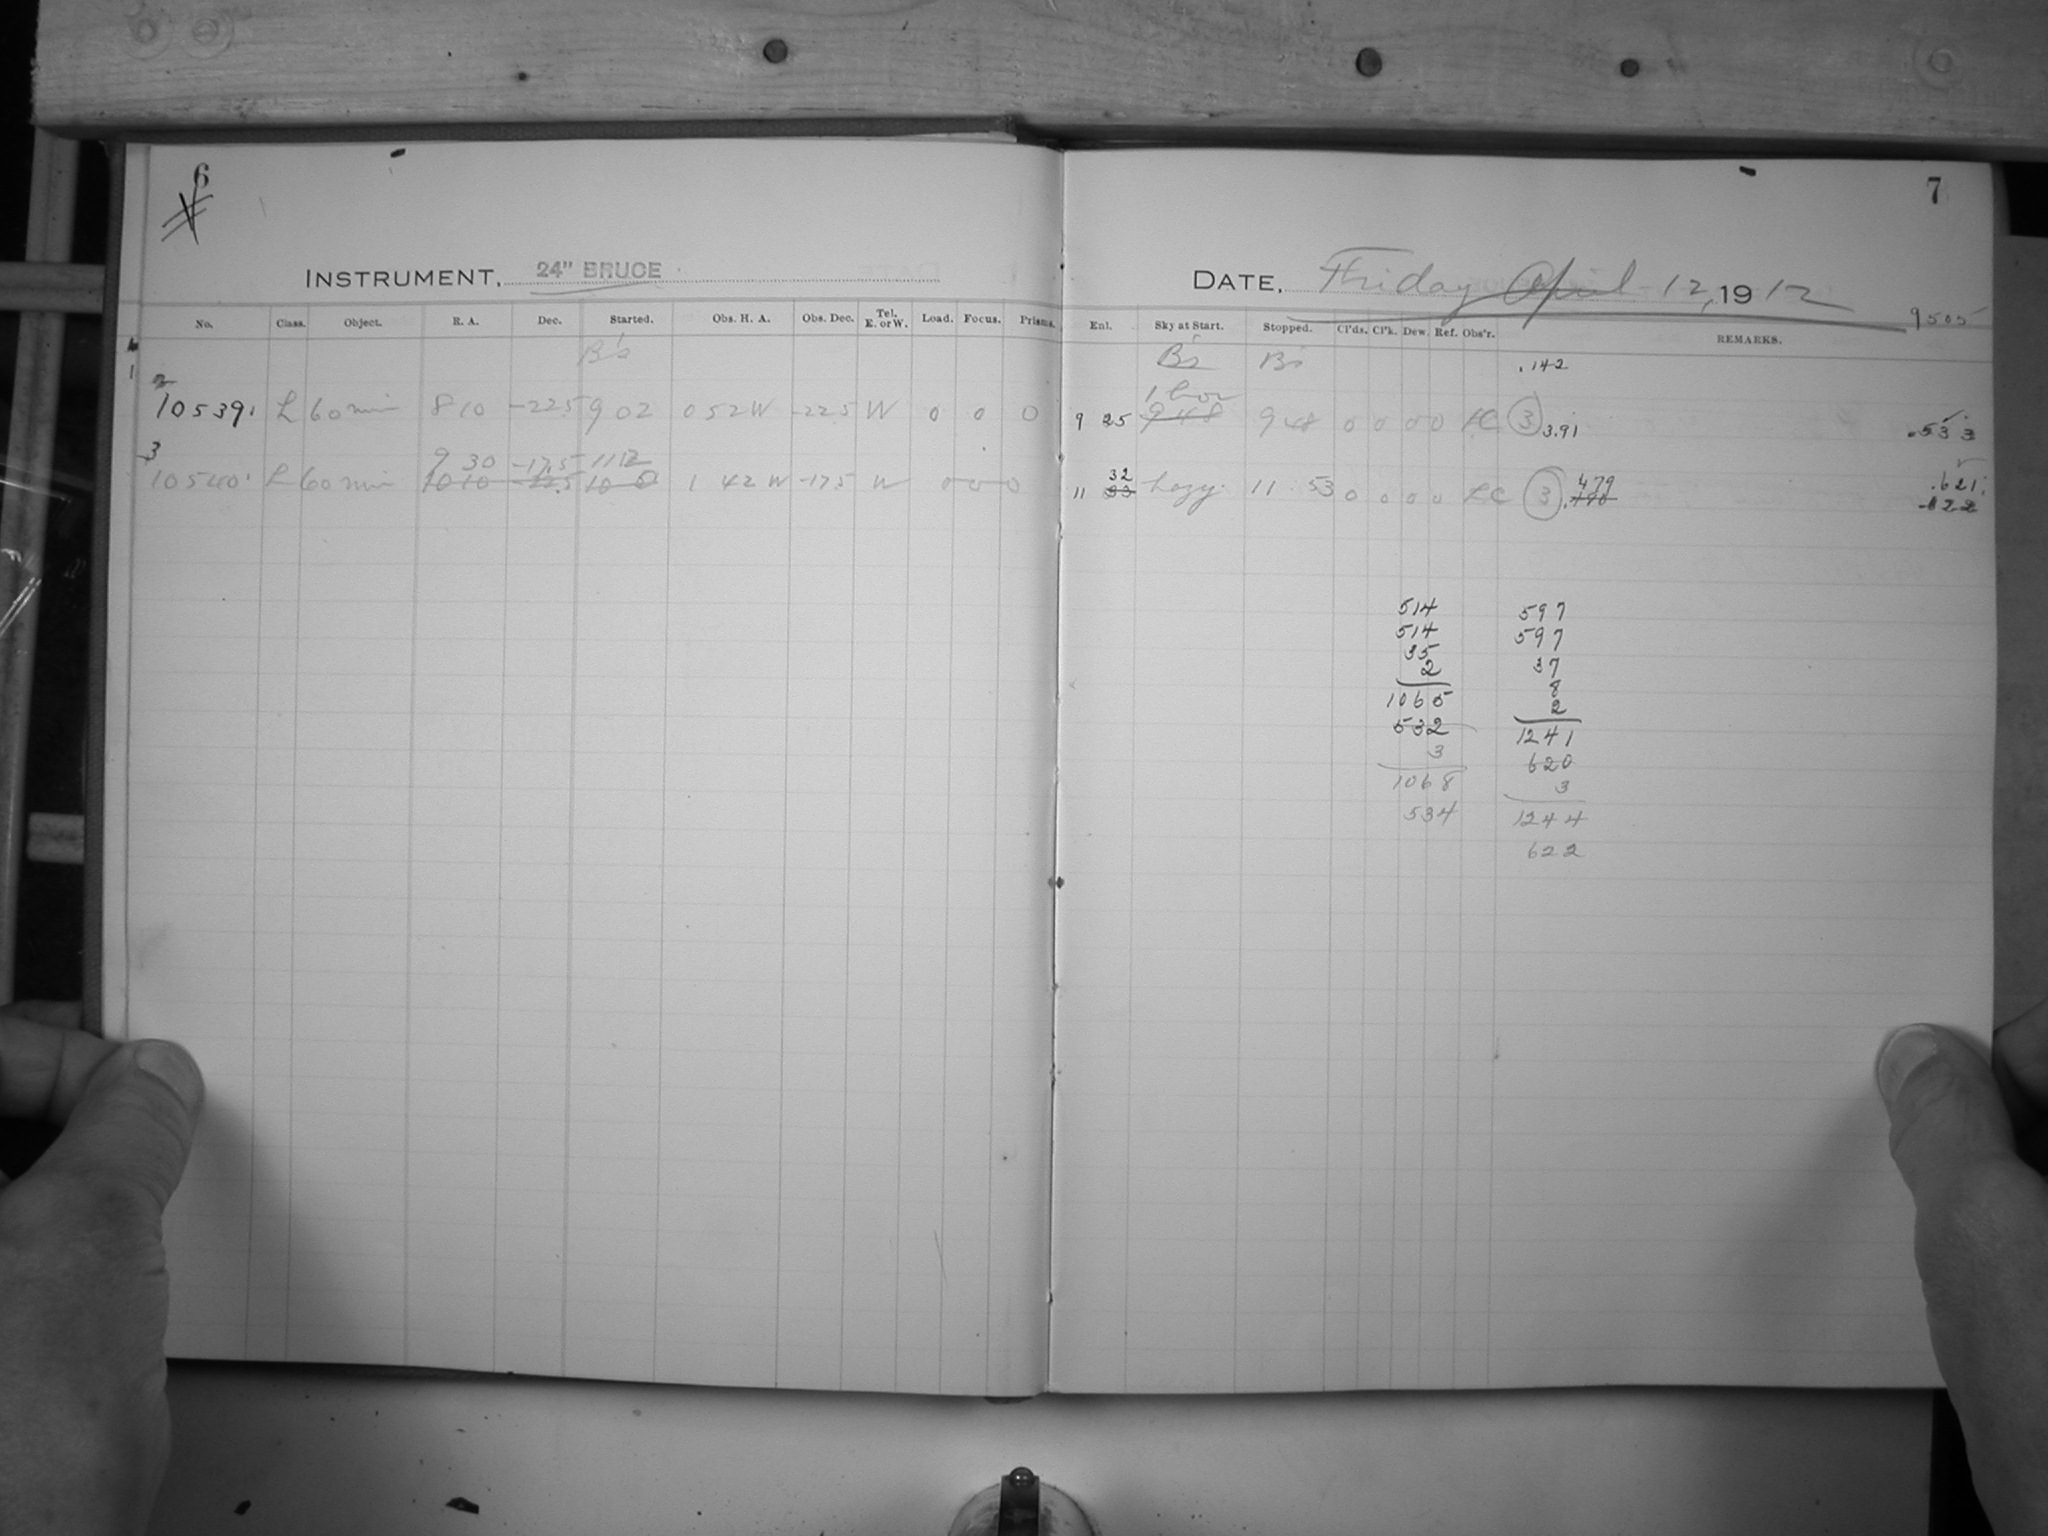 6
INSTRUMENT, 24" BRUCE
No. Class. Object. R. A. Dec. Started. Obs. H. A. Obs. Dec. Tel. E. or W. Load. Focus. Prisms.
B's
1
2
10539 L 60 min 8 10 -22.5 9 02 0 52 W -22.5 W 0 0 0
3
9 30 -17.5 11 12
10540 L 60 min 10 10 -22.5 10 0 1 42 W -17.5 W 0 0 0
7
DATE, Friday April 12, 1912
9505
Enl. Sky at Start. Stopped. Cl'ds. Cl'k. Dew. Ref. Obs'r. REMARKS.
B's B's .142
1 hor
9 25 9 48 9 48 0 0 0 0 LC 3 3.91 .533
32 479 .621
11 33 Lazy. 11 53 0 0 0 0 LC 3 .622
514 597
514 597
35 37
2 8
1065 2
532 1241
3 620
1068 3
534 1244
622